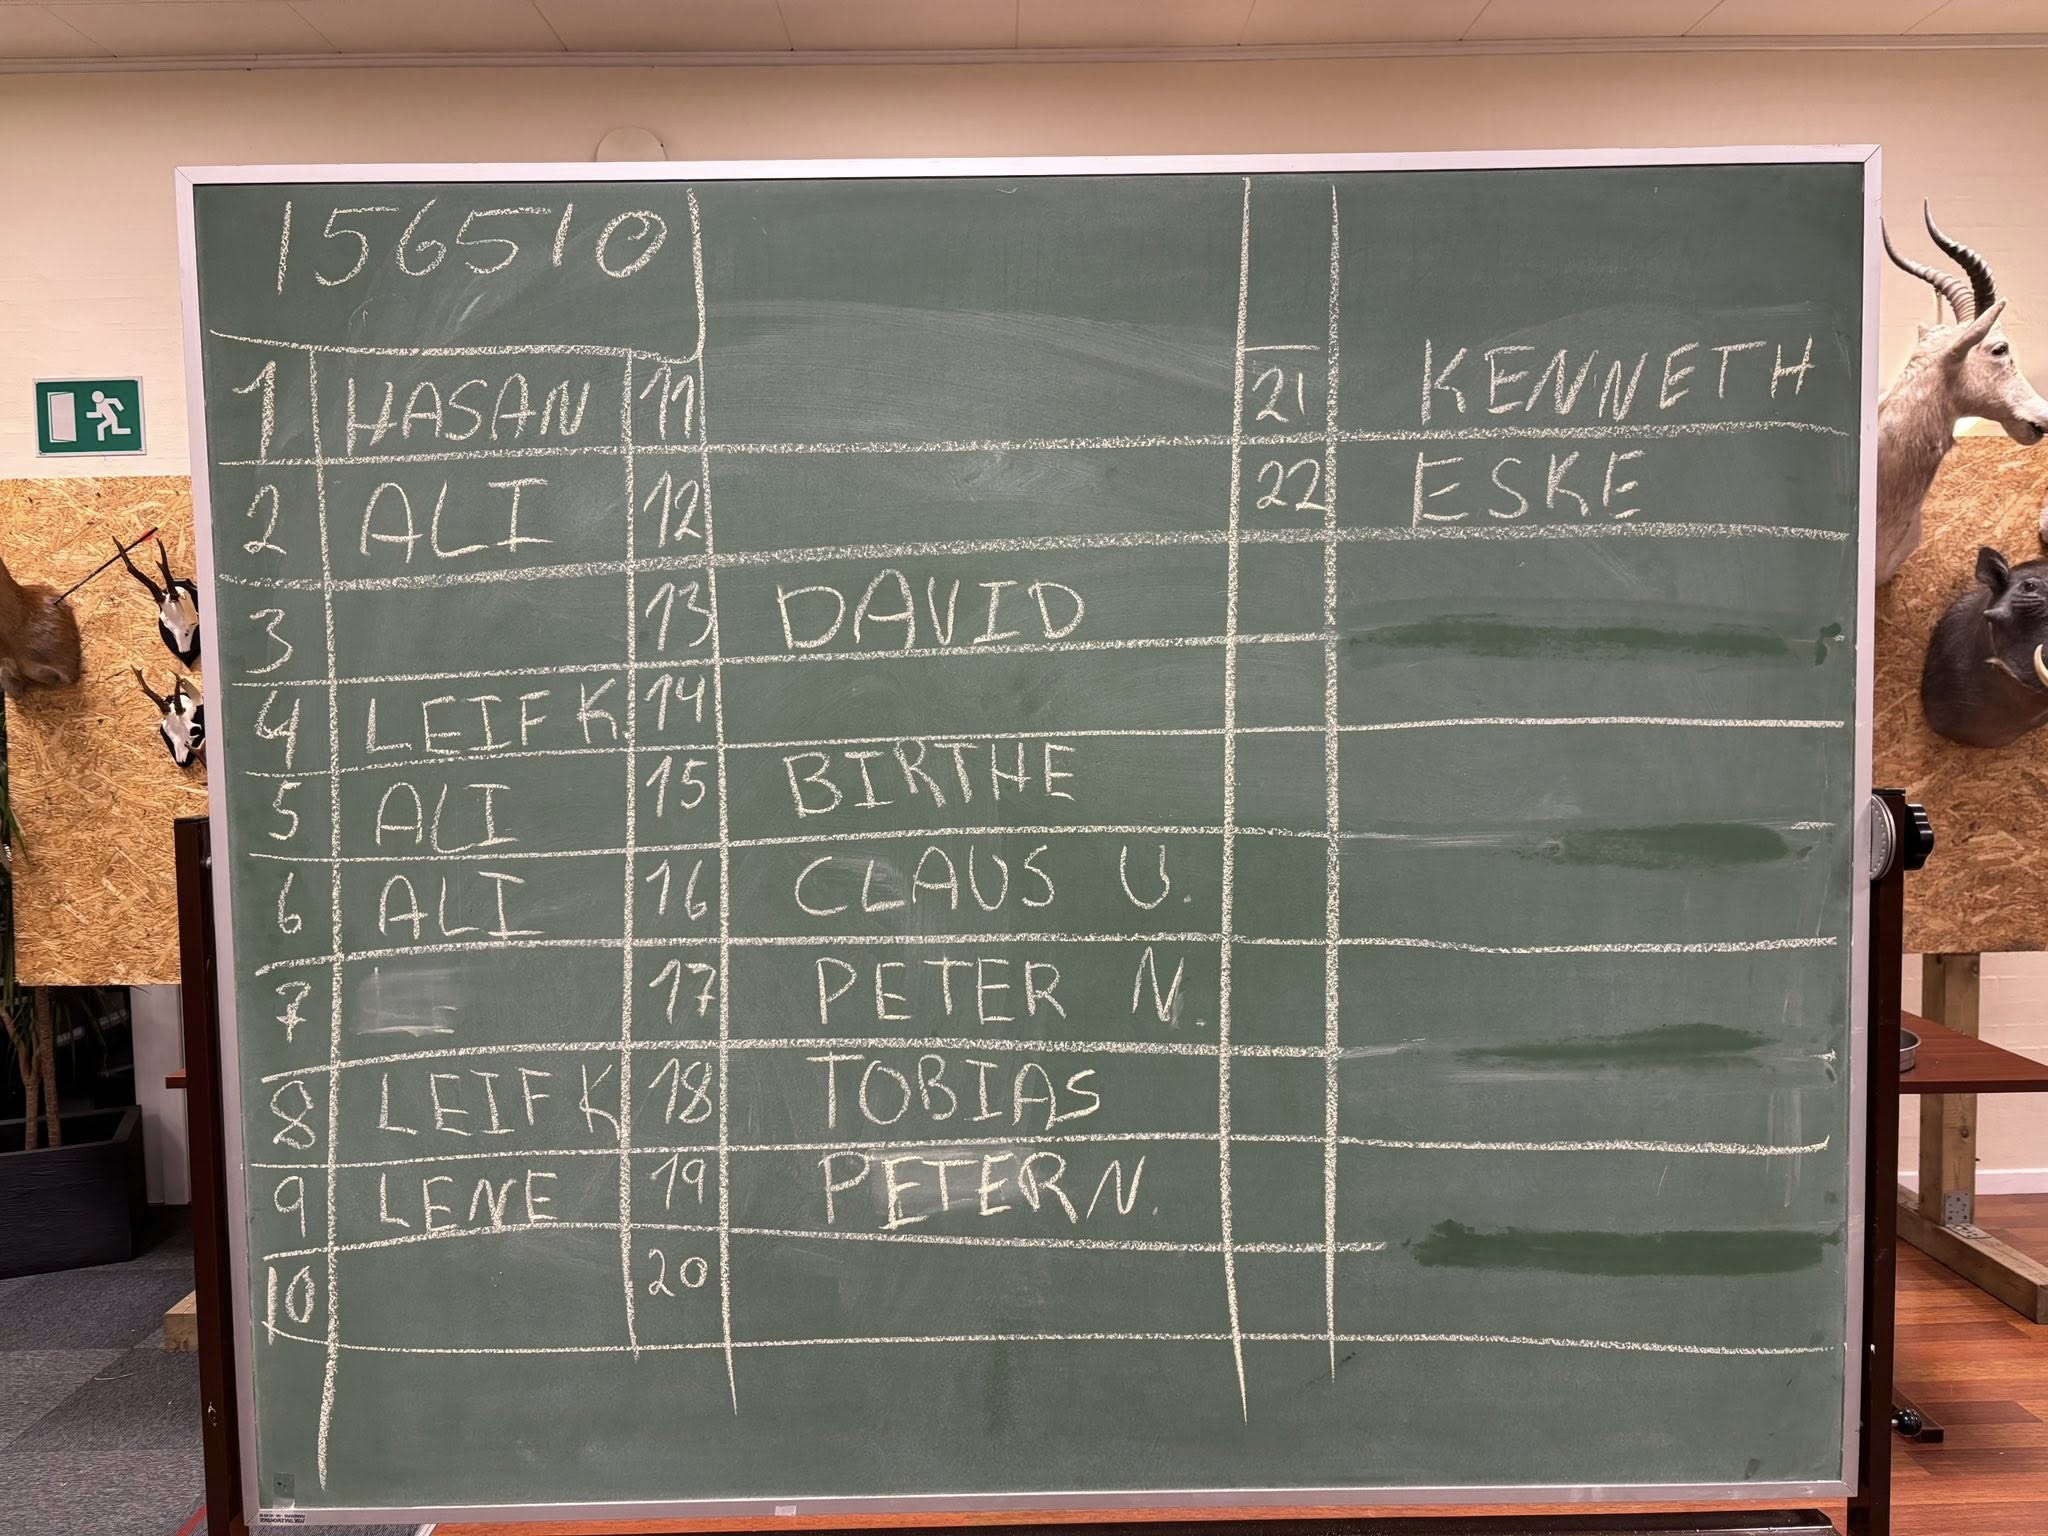 156510
1 HASAN
2 ALI
3
4 LEIF K.
5 ALI
6 ALI
7
8 LEIF K
9 LENE
10
11
12
13 DAVID
14
15 BIRTHE
16 CLAUS U.
17 PETER N.
18 TOBIAS
19 PETER N.
20
21 KENNETH
22 ESKE